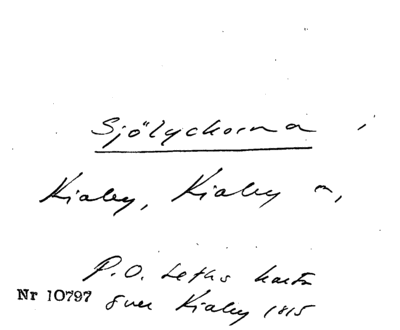 Sjölyckorna i
Kiaby, Kiaby n,
P.O. Leths karta
Nr 10797 över Kiaby 1815